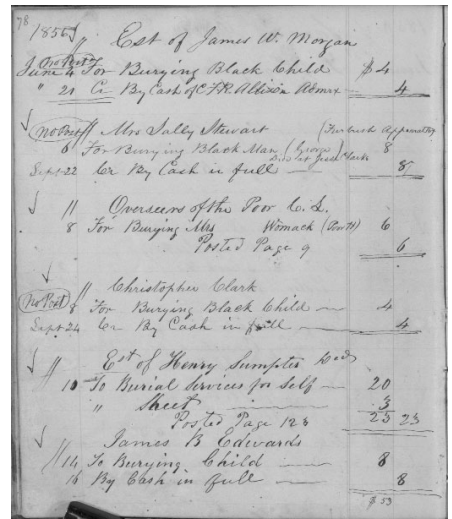 78
1856
Est of James W. Morgan
No Post
June 4 For Burying Black Child $4
" 21 Cr By Cash of C. F. R. Allison Admrx 4
No Post Mrs Sally Stewart
6 For Burying Black Man (George) 8
Died at Jesse Clark
Sept 22 Cr By Cash in full 8
Overseers of the Poor C. L.
8 For Burying Mrs Womack (Poor H) 6
Posted Page 9 6
Christopher Clark
No Post 8 For Burying Black Child 4
Sept 24 Cr By Cash in full 4
Est of Henry Sumpter Decd
10 To Burial Services for Self 20
" Sheet 3
Posted Page 123 23 23
James B Edwards
14 To Burying Child 8
16 By Cash in full 8
$ 53